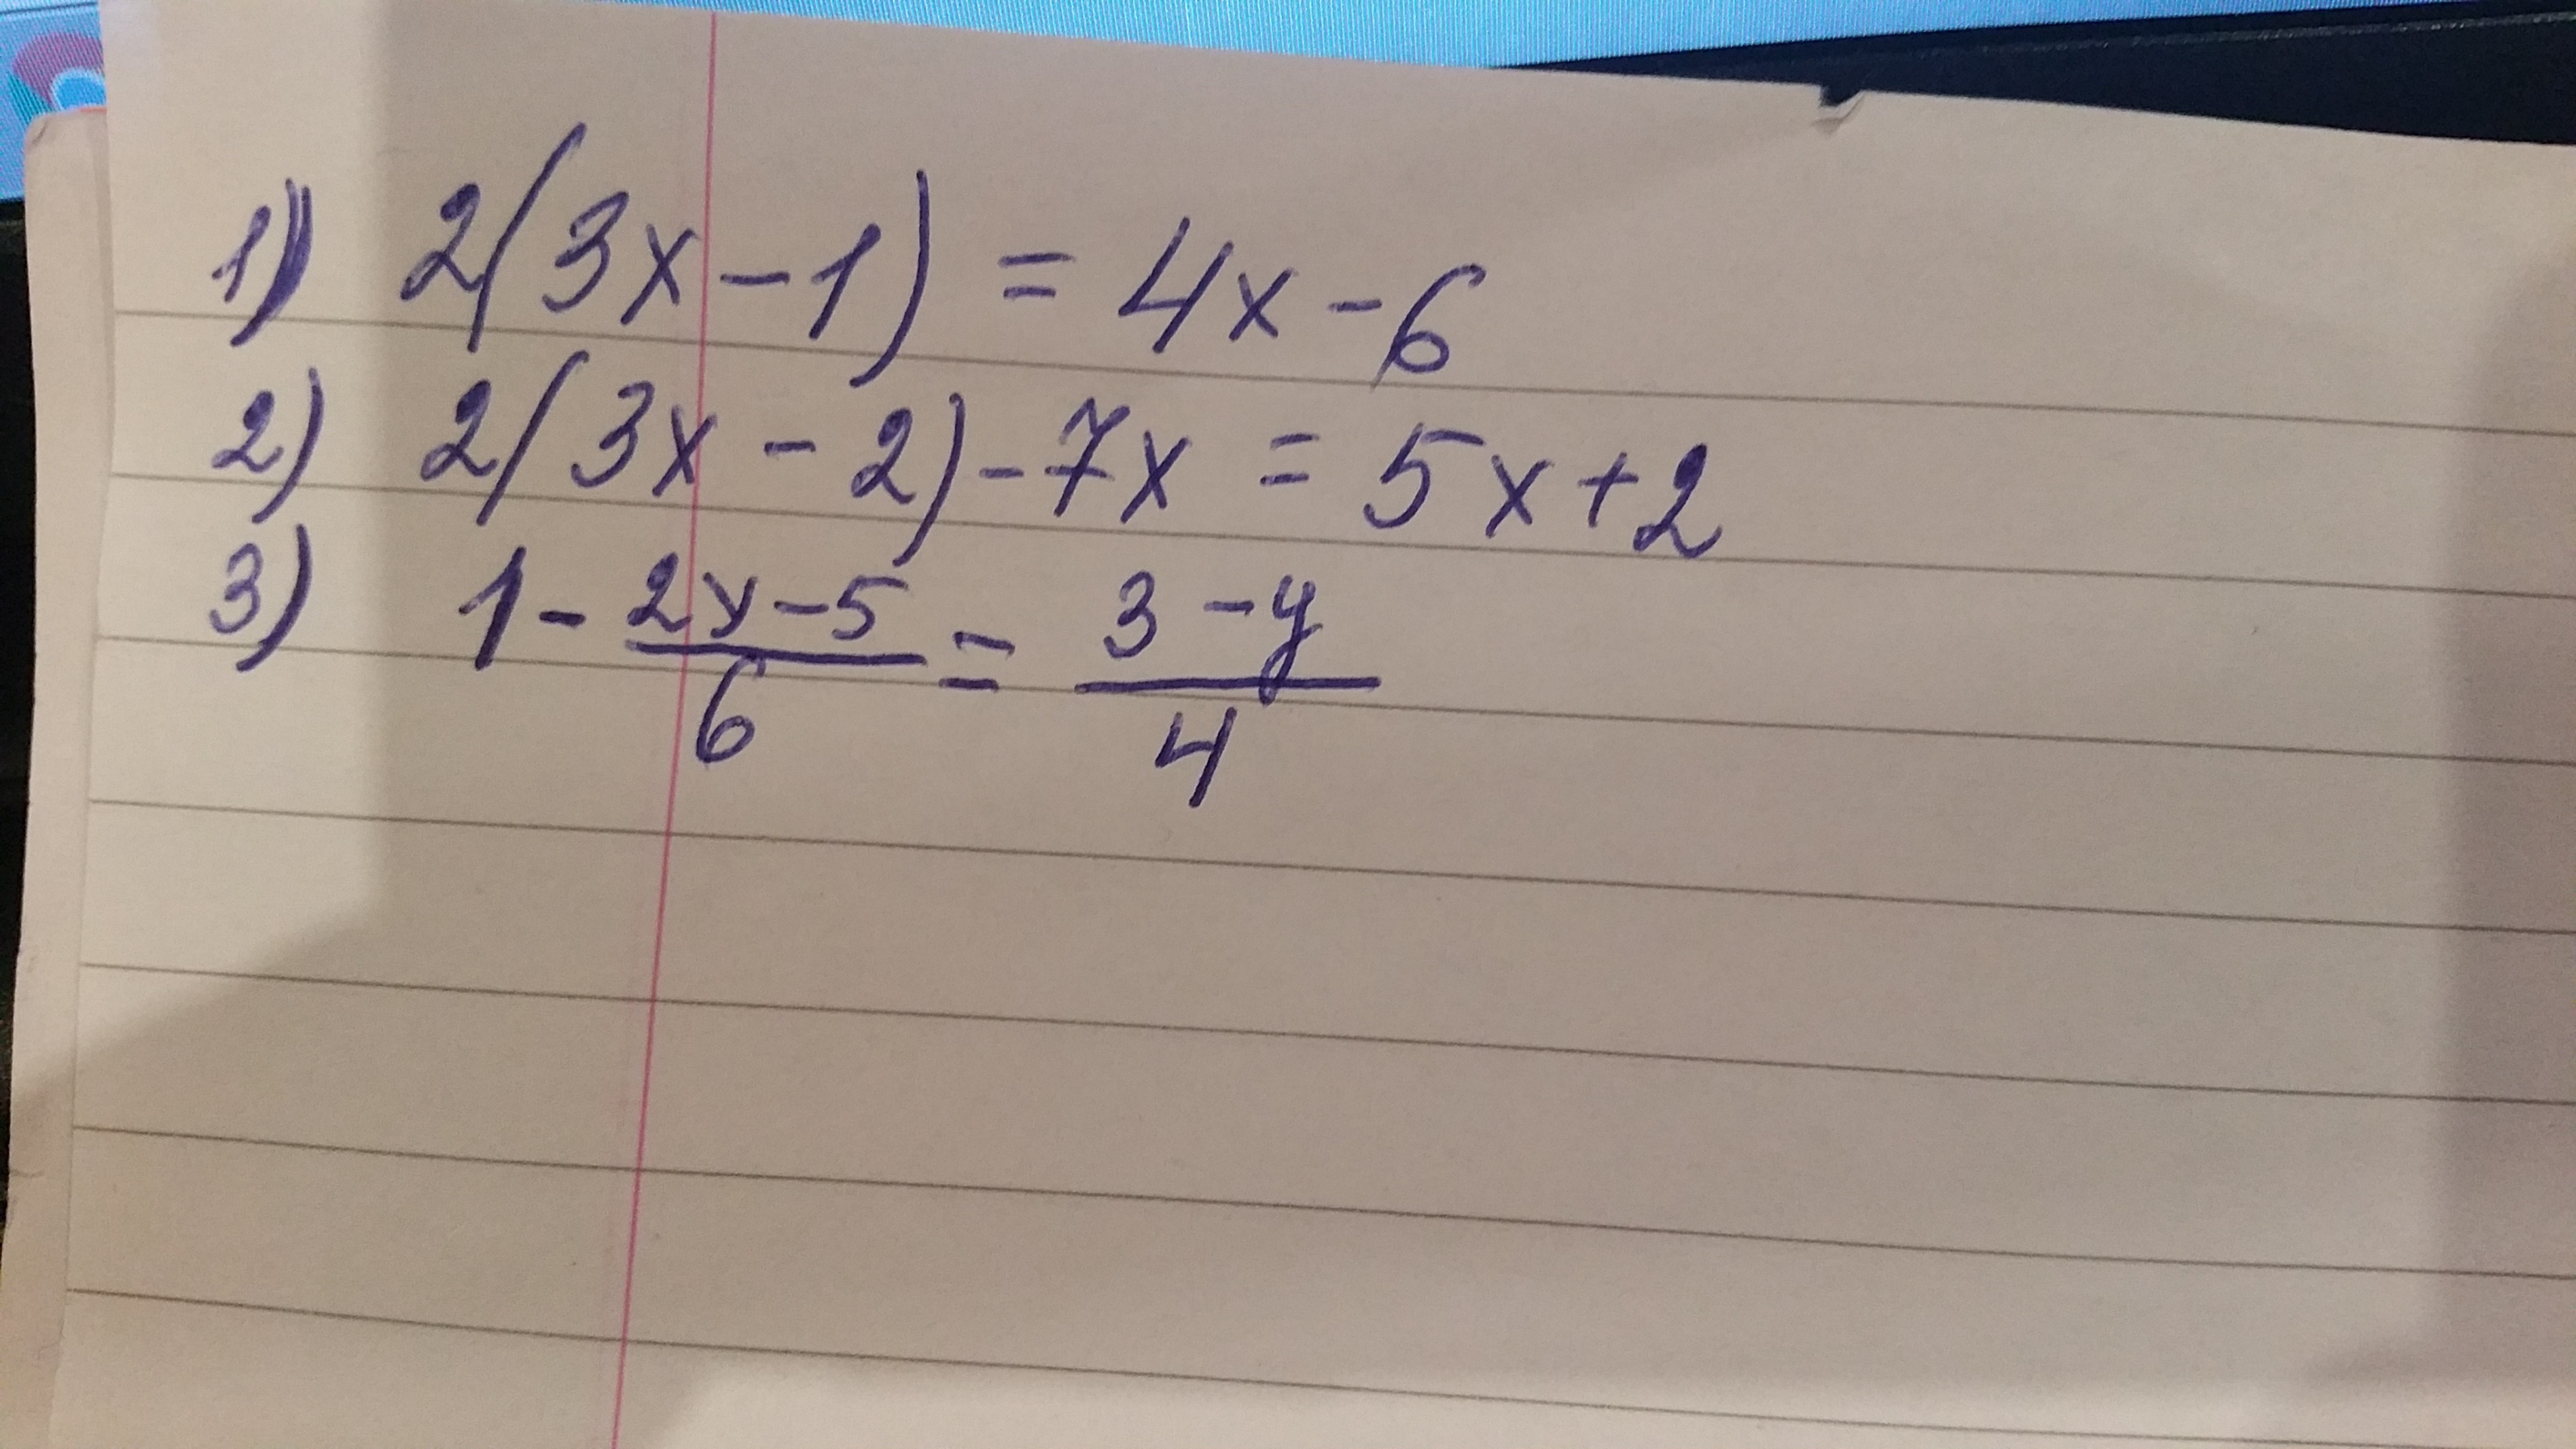 1) 2(3x-1) = 4x-6
2) 2(3x-2)-7x = 5x+2
3) 1 - (2y-5)/6 = (3-y)/4